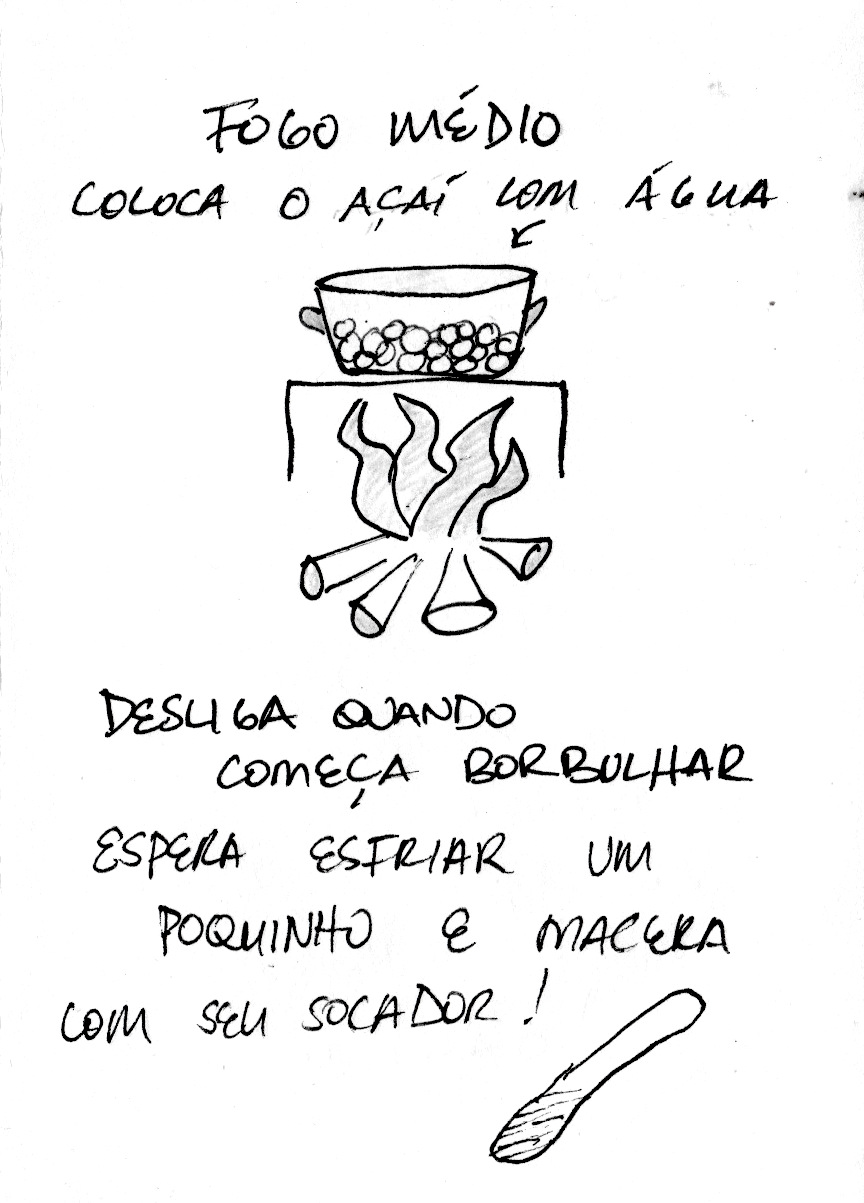 FOGO MÉDIO
COLOCA O AÇAÍ COM ÁGUA
DESLIGA QUANDO
COMEÇA BORBULHAR
ESPERA ESFRIAR UM
POQUINHO E MACERA
COM SEU SOCADOR!